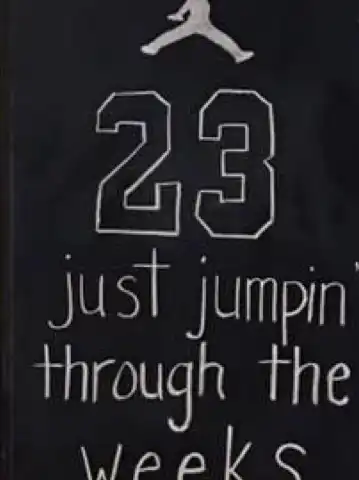 23
just jumpin'
through the
weeks